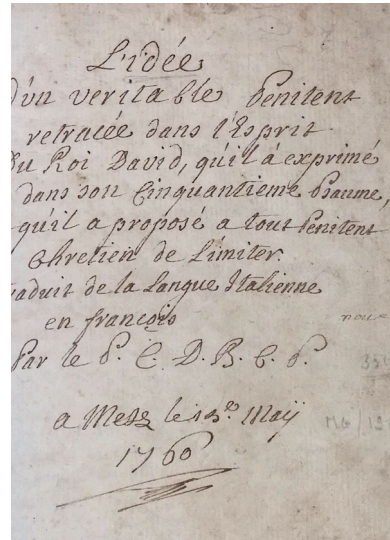 L'idée
d'un veritable Penitent
retracée dans l'Esprit
du Roi David, qu'il á exprimé
dans son Cinquantieme Psaume,
qu'il a proposé a tout Penitent
Chretien de L'imiter.
raduit de la Langue Italienne
en françois
Par le P. C. D. B. C. P.
a Metz le 13.
Maÿ
1760